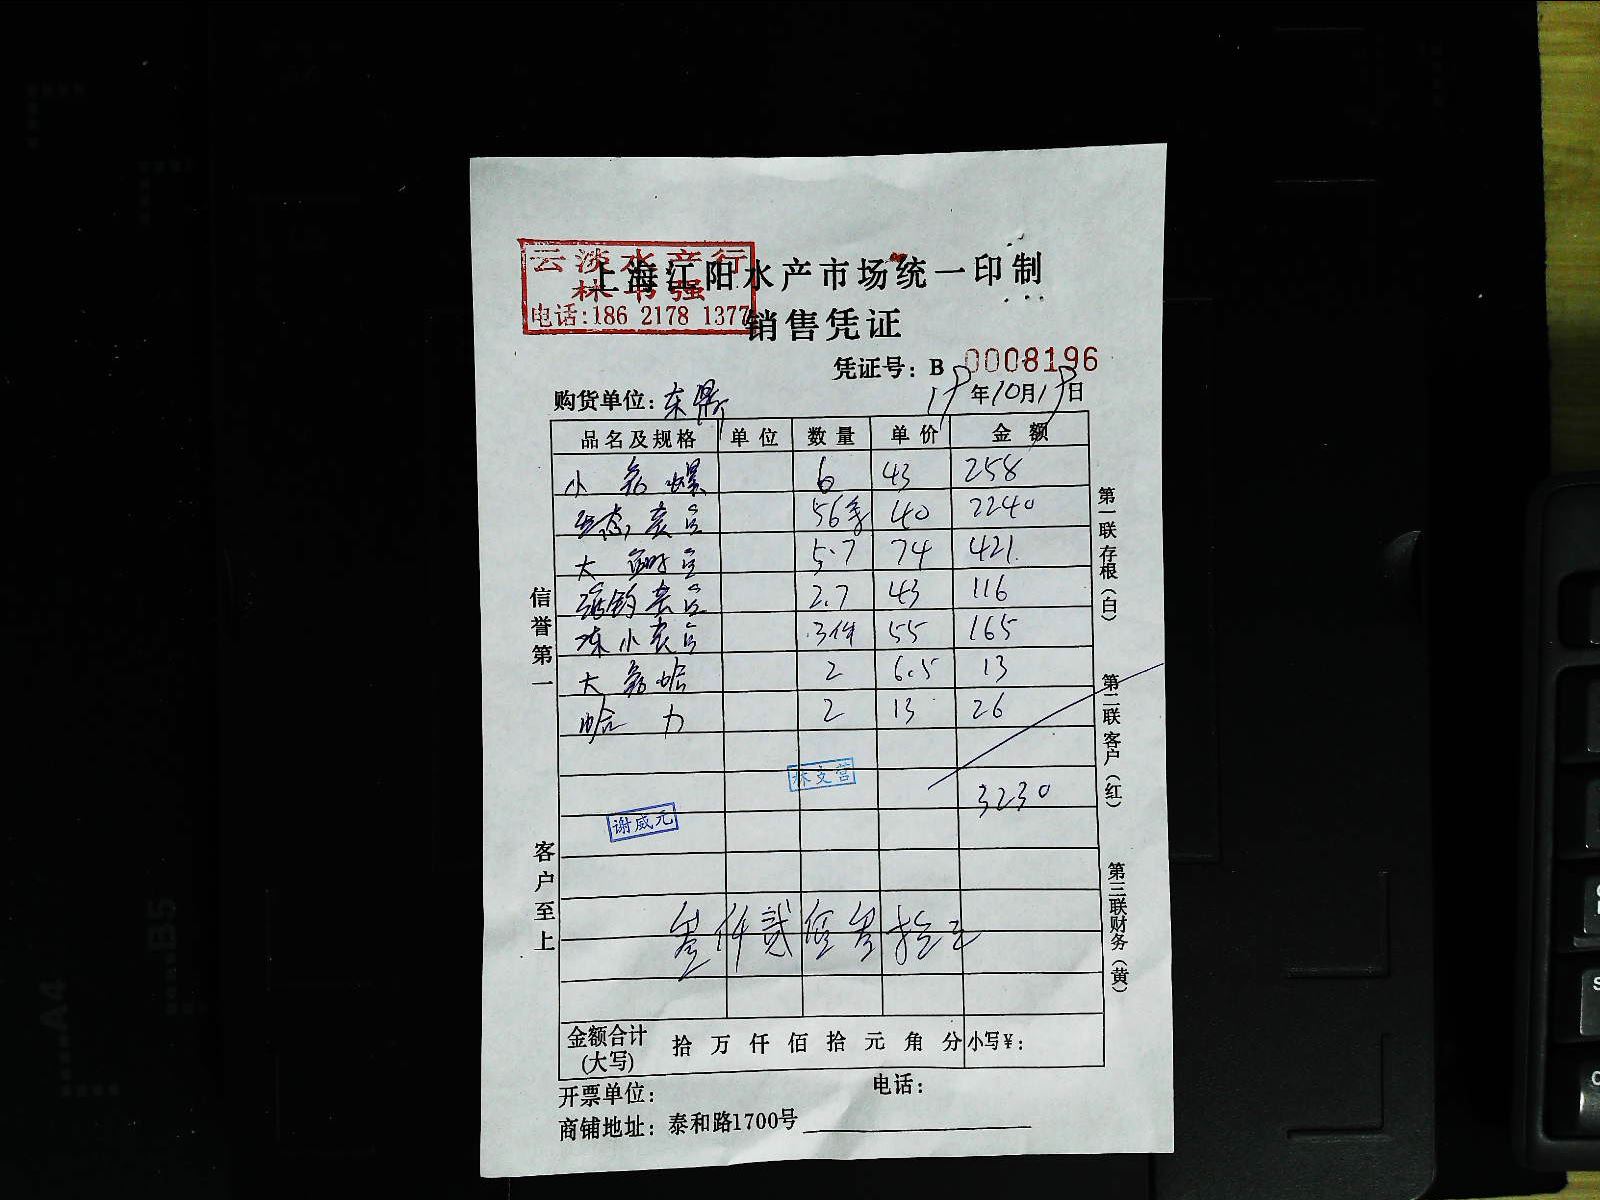 云淡水产行
上海江阳水产市场统一印制
电话:186 2178 1377
销售凭证
凭证号: B 0008196
购货单位: 东鼎 年10月19日
品名及规格 单位 数量 单价 金额
小 螺 6 43 258
56 40 2240
大 5.7 74 421.
2.7 43 116
冻小 3件 55 165
大 蛤 2 6.5 13
蛤 力 2 13 26
林文营
3230
谢威元
叁仟贰佰叁拾元
金额合计(大写) 拾 万 仟 佰 拾 元 角 分 小写¥:
开票单位: 电话:
商铺地址: 泰和路1700号
信誉第一
客户至上
第一联存根(白)
第二联客户(红)
第三联财务(黄)